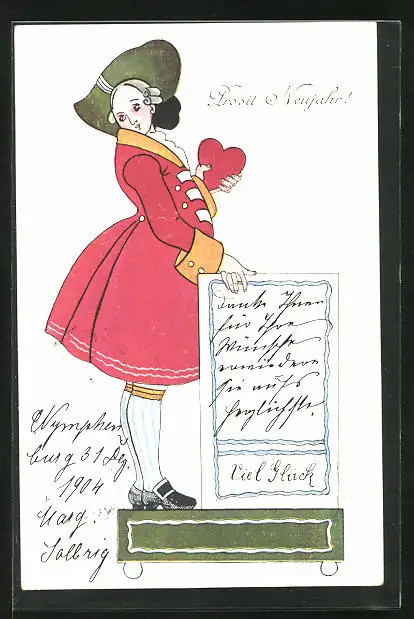 Prosit Neujahr!
danke Ihnen
für Ihre
Wünsche
erwiedere
sie aufs
herzlichste.
Viel Glück
Nymphen
burg 31 Dez.
1904
Marg.
Solbrig